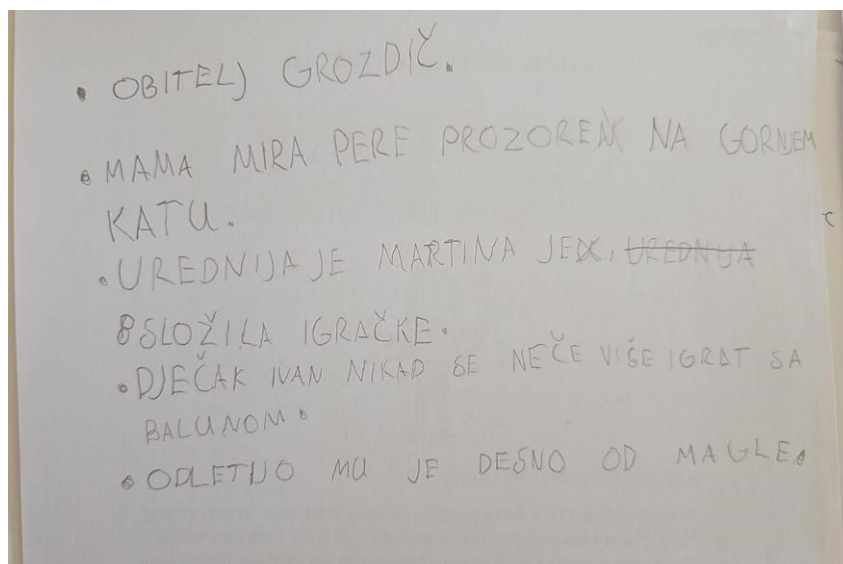 • OBITELJ GROZDIČ.
• MAMA MIRA PERE PROZOREM NA GORNJEM
KATU.
• UREDNIJA JE MARTINA JE, UREDNIJA
SLOŽILA IGRAČKE.
• DJEČAK IVAN NIKAD SE NEČE VIŠE IGRAT SA
BALUNOM.
• ODLETIJO MU JE DESNO OD MAGLE.